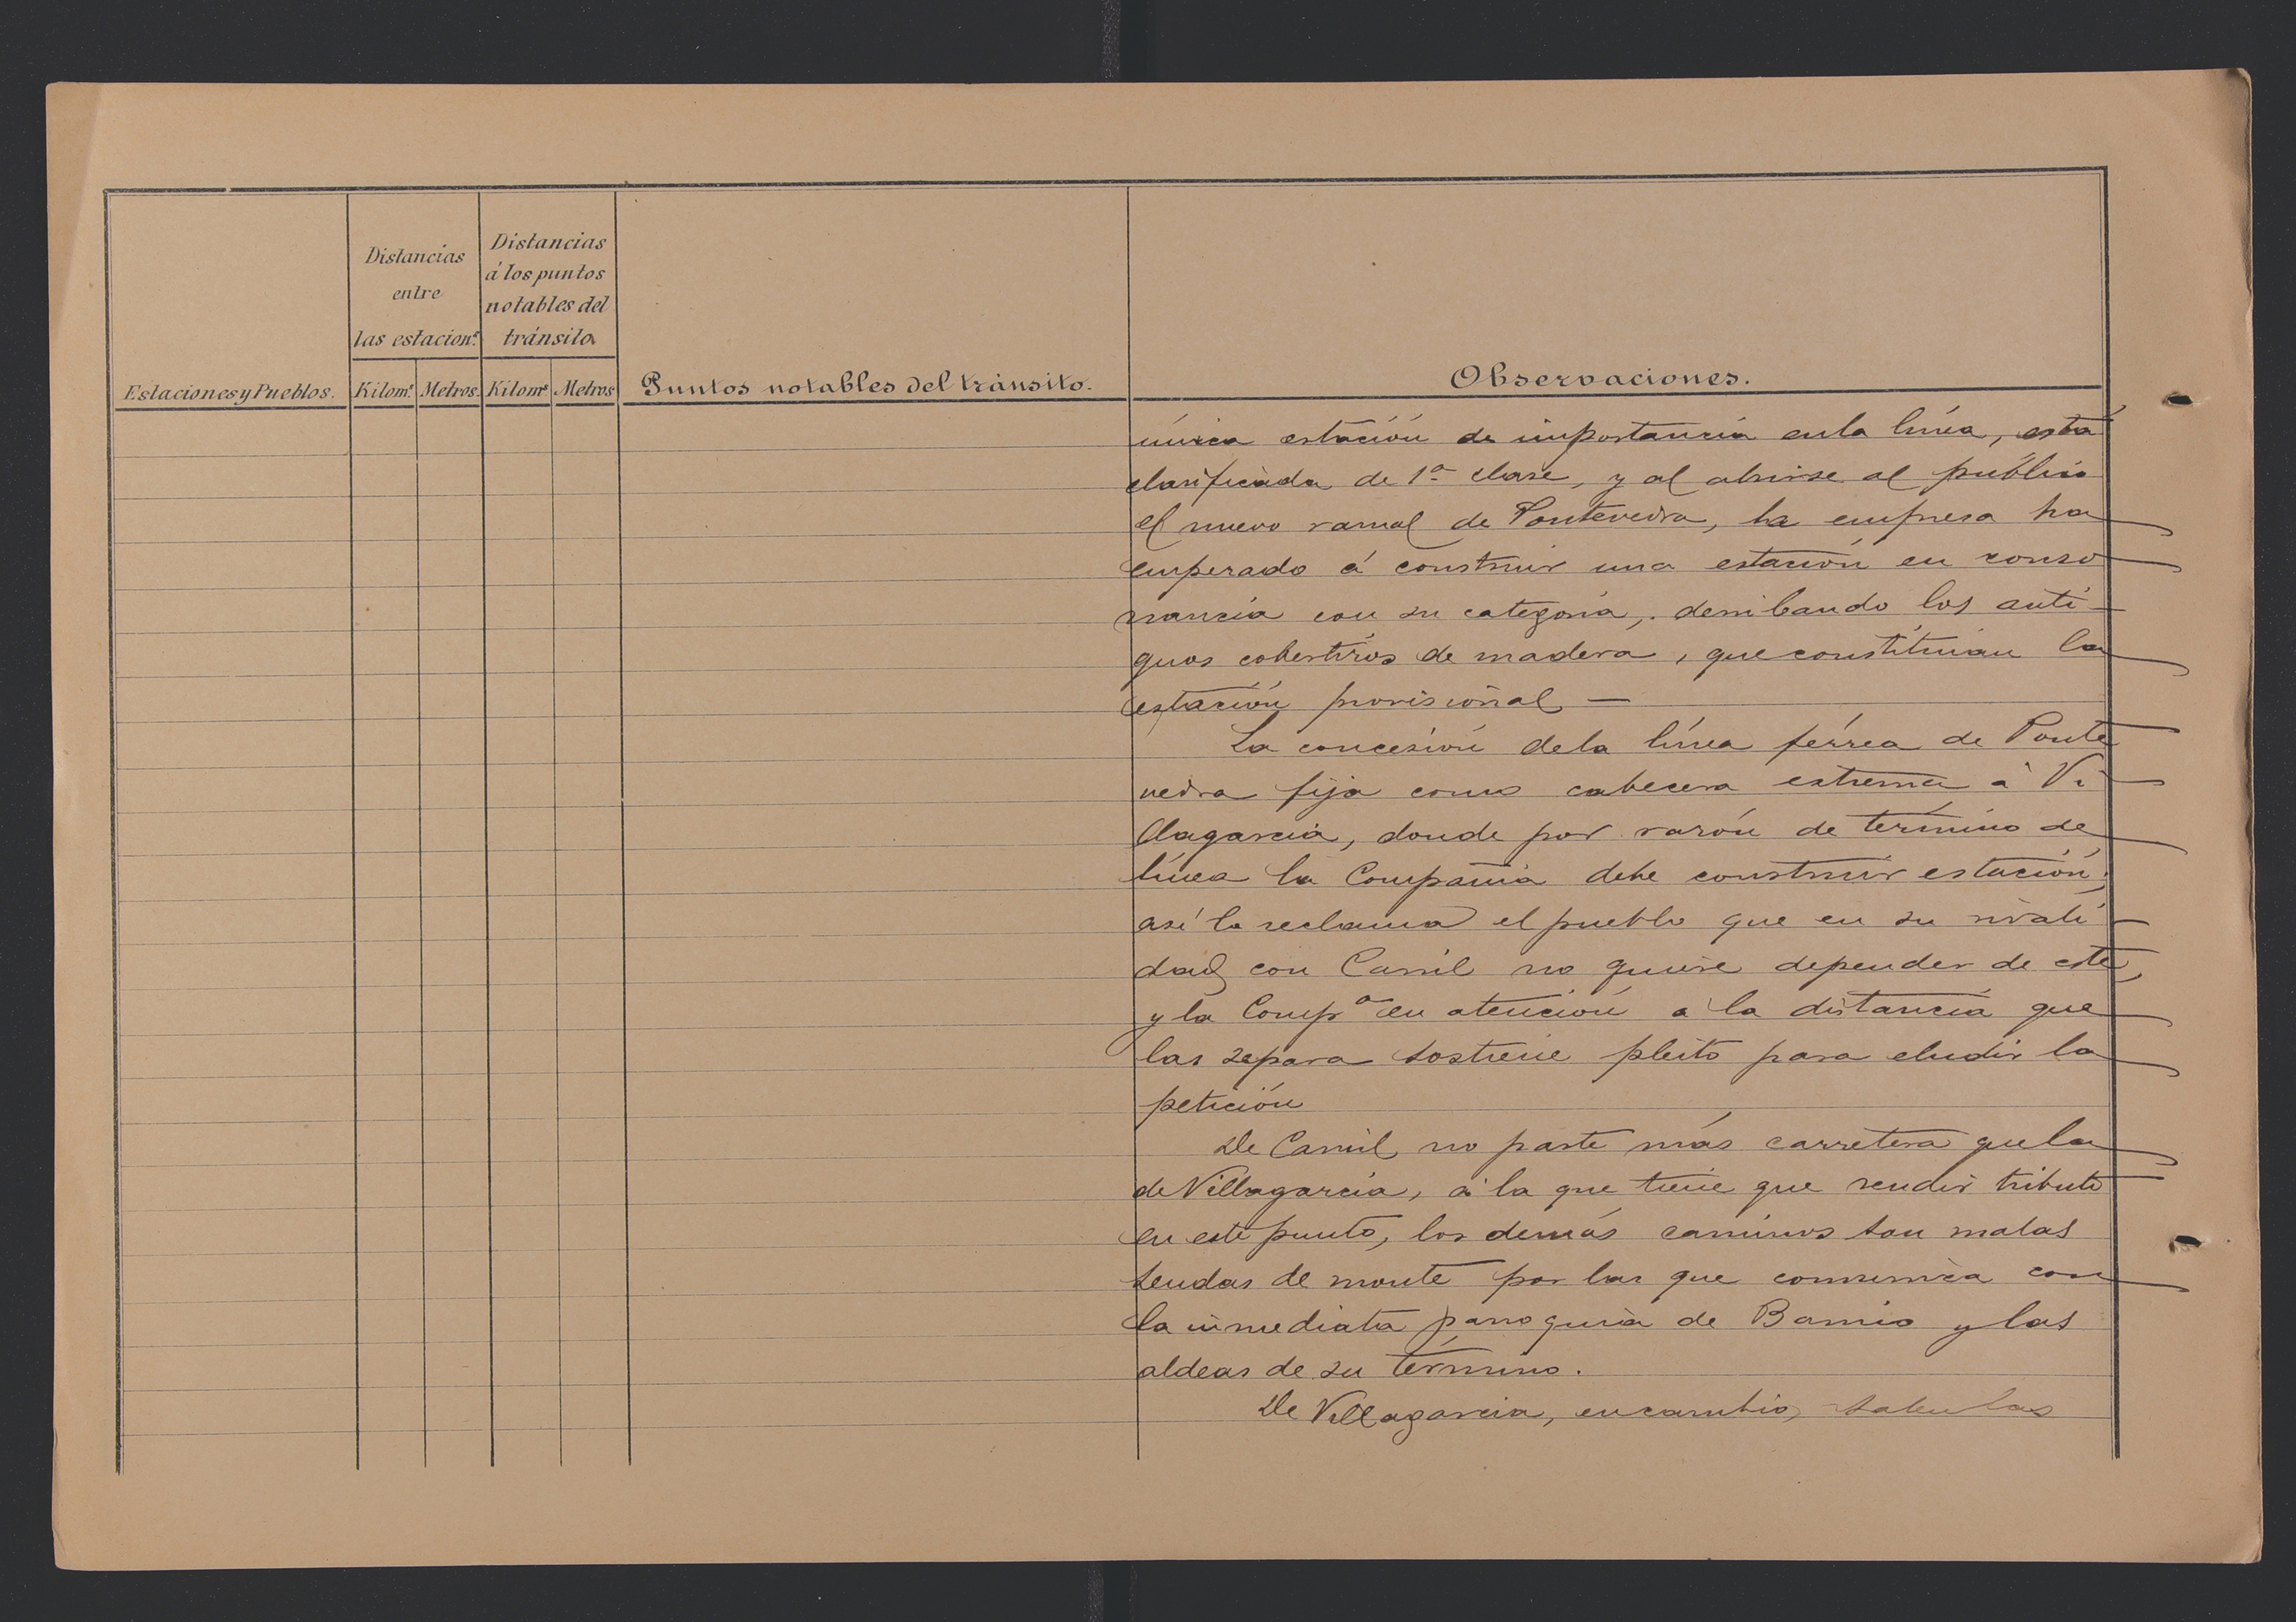 Distancias
entre
las estacion.s
Distancias
á los puntos
notables del
tránsito
Estaciones y Pueblos.
Kilom.s
Metros.
Kilom.s
Metros
Puntos notables del tránsito.
Observaciones.
única estación de importancia en la línea, está
clasificada de 1ª clase, y al abrirse al público
el nuevo ramal de Pontevedra, la empresa ha
empezado á construir una estación en conso
nancia con su categoría, derribando los anti-
guos cobertizos de madera, que constituían la
estación provisional —
La concesión de la línea férrea de Ponte
vedra fija como cabecera estrema á Vi
llagarcía, donde por razón de término de
línea la Compañía debe construir estación;
así lo reclama el pueblo que en su rivali
dad con Carril no quiere depender de este,
y la Compª en atención á la distancia que
las separa sostiene pleito para eludir la
petición
De Carril no parte más carretera que la
de Villagarcía, á la que tiene que rendir tributo
en este punto, los demás caminos son malas
sendas de monte por las que comunica con
la inmediata parroquia de Bamio y las
aldeas de su término.
De Villagarcia, en cambio, salen las